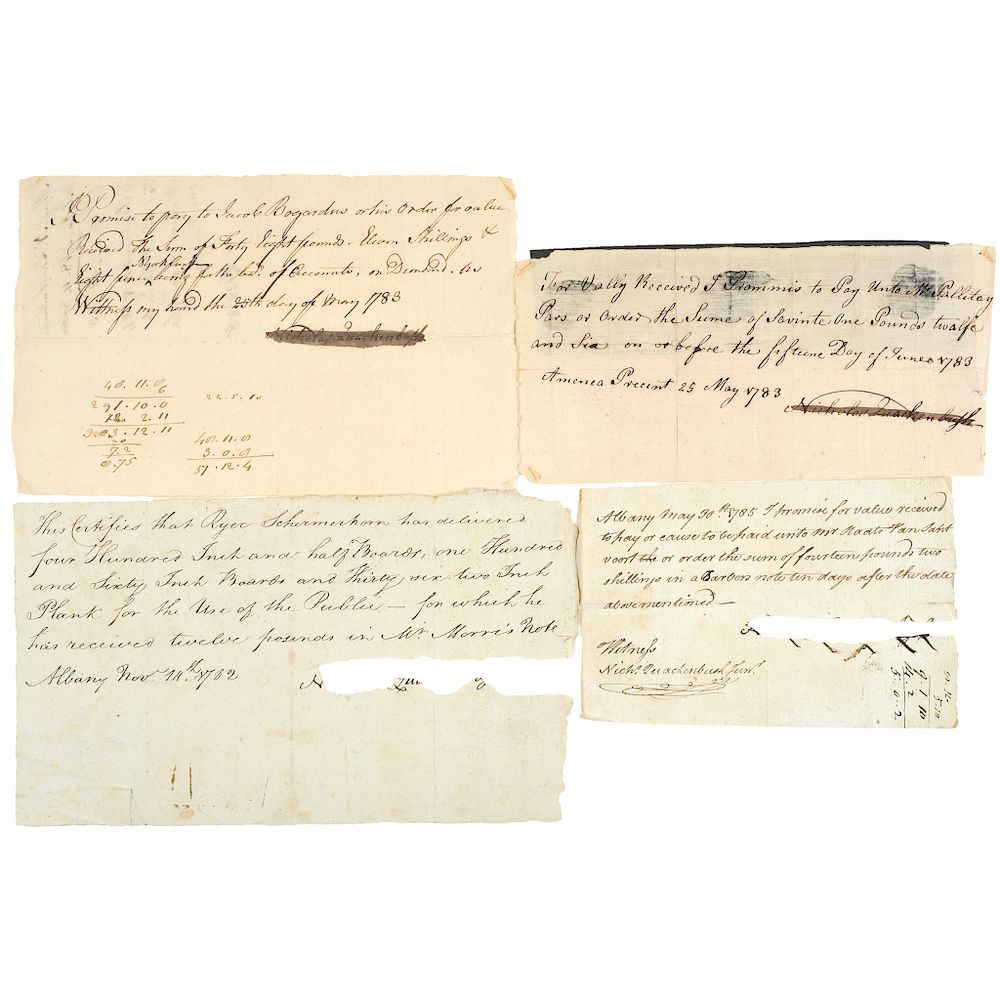 I Promise to pay to Jacob Bogardus or his Order for value
Received the Sum of Forty Eight pounds. Eleven Shillings &
Eight pence being for the bal. of Accounts, on Demand. As
Witness my hand the 25th day of May 1783
Nicholas Quackenbush
48. 11. 8
6
291. 10. 0
2. 11
12. 11
7.2
8.75
24. 5. 10
48. 11. 8
3. 0. 8
51. 12. 4
For Vally Received I Prommis to Pay Unto Mr Pallitay
Pars or Order the Sume of Savinte One Pounds twalfe
and Six on or before the fifteene Day of June 1783
Amenea Precint 25 May 1783
Nicholas Quackenbush
This Certifies that Ryer Schermerhorn has delivered
four Hundred Inch and half Boards, one Hundred
and Sixty Inch Boards and Thirty six two Inch
Plank for the Use of the Public — for which he
has received twelve pounds in Mr Morris Note
Albany Novr 14th 1782
Albany May 30th 1785 I promise for value received
to pay or cause to be paid unto Mr Naats Van Sant
voort the or order the sum of fourteen pounds two
shillings in a Barbers note ten days after the date
abovementioned —
Witness
Nichs Quackenbush Junr
9 1 10
14 2
5. 0. 2